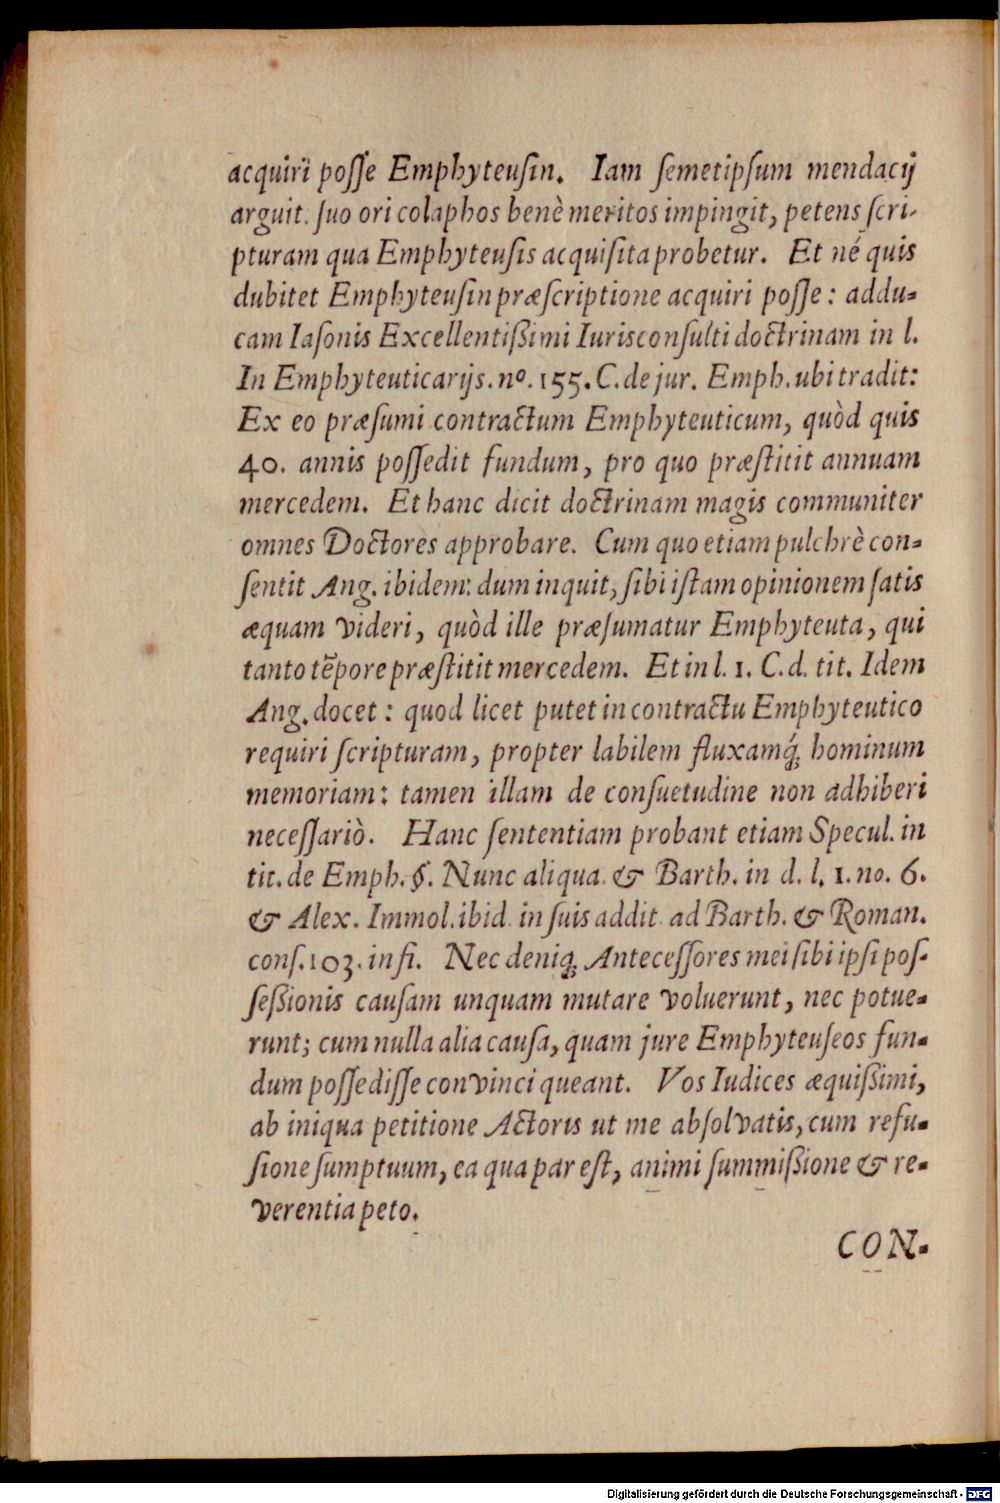 acquiri posſe Emphyteuſin. Iam ſemetipſum mendacij
arguit. ſuo ori colaphos benè meritos impingit, petens ſcri-
pturam qua Emphyteuſis acquiſita probetur. Et né quis
dubitet Emphyteuſin præſcriptione acquiri poſſe: addu-
cam Iaſonis Excellentißimi Iurisconſulti doctrinam in l.
In Emphyteuticarijs. no. 155. C. de jur. Emph. ubi tradit:
Ex eo præſumi contractum Emphyteuticum, quòd quis
40. annis poſſedit fundum, pro quo præſtitit annuam
mercedem. Et hanc dicit doctrinam magis communiter
omnes Doctores approbare. Cum quo etiam pulchrè con-
ſentit Ang. ibidem: dum inquit, ſibi iſtam opinionem ſatis
æquam videri, quòd ille præſumatur Emphyteuta, qui
tanto tẽpore præſtitit mercedem. Et in l. 1. C. d. tit. Idem
Ang. docet: quod licet putet in contractu Emphyteutico
requiri ſcripturam, propter labilem fluxamq́ꝫ hominum
memoriam: tamen illam de conſuetudine non adhiberi
neceſſariò. Hanc ſententiam probant etiam Specul. in
tit. de Emph. §. Nunc aliqua. & Barth. in d. l. 1. no. 6.
& Alex. Immol. ibid. in ſuis addit. ad Barth. & Roman.
conſ. 103. in fi. Nec deniqꝫ Anteceſſores mei ſibi ipſi poſ-
ſeßionis cauſam unquam mutare voluerunt, nec potue-
runt; cum nulla alia cauſa, quam jure Emphyteuſeos fun-
dum poſſediſſe convinci queant. Vos Iudices æquißimi,
ab iniqua petitione Actoris ut me abſolvatis, cum refu-
ſione ſumptuum, ea qua par eſt, animi ſummißione & re-
verentia peto.
CON-
Digitalisierung gefördert durch die Deutsche Forschungsgemeinschaft - DFG